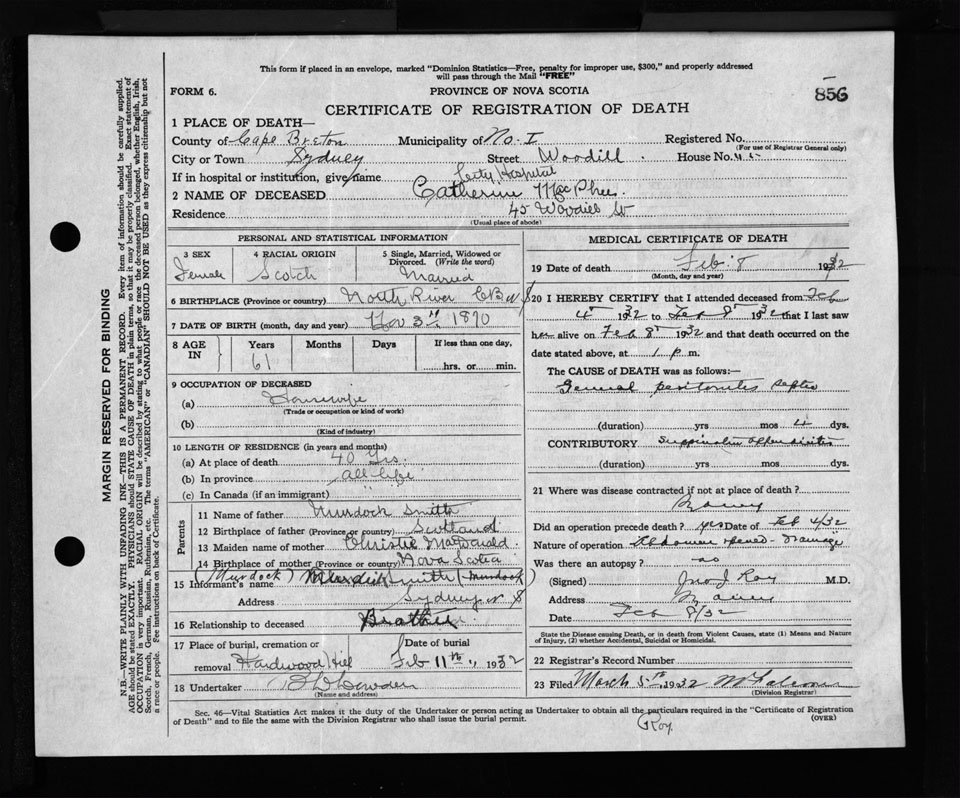 This form if placed in an envelope, marked "Dominion Statistics—Free, penalty for improper use, $300," and properly addressed
will pass through the Mail "FREE"
FORM 6.
PROVINCE OF NOVA SCOTIA
856
CERTIFICATE OF REGISTRATION OF DEATH
1 PLACE OF DEATH—
County of Cape Breton Municipality of No. I Registered No.
(For use of Registrar General only)
City or Town Sydney Street Woodill House No. 45
If in hospital or institution, give name City Hospital
2 NAME OF DECEASED Catherine McPhee
Residence 45 Woodill St
(Usual place of abode)
PERSONAL AND STATISTICAL INFORMATION
3 SEX 4 RACIAL ORIGIN 5 Single, Married, Widowed or Divorced. (Write the word)
Female Scotch Married
6 BIRTHPLACE (Province or country) North River C B N S
7 DATE OF BIRTH (month, day and year) Nov 3rd 1870
8 AGE IN Years Months Days If less than one day,
61 hrs. or min.
9 OCCUPATION OF DECEASED
(a) Housewife
(Trade or occupation or kind of work)
(b)
(Kind of industry)
10 LENGTH OF RESIDENCE (in years and months)
(a) At place of death 40 Yrs.
(b) In province all life
(c) In Canada (if an immigrant) "
Parents
11 Name of father Murdock Smith
12 Birthplace of father (Province or country) Scotland
13 Maiden name of mother Christie MacDonald
14 Birthplace of mother (Province or country) Nova Scotia
15 Informant's name (Murdock) Smith (Murdock)
Address Sydney N S
16 Relationship to deceased Brother
17 Place of burial, cremation or removal Hardwood Hill Date of burial Feb 11th 1932
18 Undertaker
(Name and address)
MEDICAL CERTIFICATE OF DEATH
19 Date of death Feb 8 1932
(Month, day and year)
20 I HEREBY CERTIFY that I attended deceased from Feb
4 1932 to Feb 8 1932 that I last saw
her alive on Feb 8 1932 and that death occurred on the
date stated above, at 1 p m.
The CAUSE OF DEATH was as follows:—
General peritonitis septic
(duration) yrs mos 4 dys.
CONTRIBUTORY Suppurative appendicitis
(duration) yrs mos dys.
21 Where was disease contracted if not at place of death?
Did an operation precede death? yes Date of Feb 4/32
Nature of operation Abdomen opened - drainage
Was there an autopsy? no
(Signed) Jno J Roy M.D.
Address
Date Feb 8/32
State the Disease causing Death, or in death from Violent Causes, state (1) Means and Nature of Injury, (2) whether Accidental, Suicidal or Homicidal.
22 Registrar's Record Number
23 Filed March 5th 1932
(Division Registrar)
Sec. 46—Vital Statistics Act makes it the duty of the Undertaker or person acting as Undertaker to obtain all the particulars required in the "Certificate of Registration
of Death" and to file the same with the Division Registrar who shall issue the burial permit.
(OVER)
Roy
MARGIN RESERVED FOR BINDING
N.B.—WRITE PLAINLY WITH UNFADING INK—THIS IS A PERMANENT RECORD. Every item of information should be carefully supplied.
AGE should be stated EXACTLY. PHYSICIANS should STATE CAUSE OF DEATH in plain terms, so that it may be properly classified. Exact statement of
OCCUPATION is very important. RACIAL ORIGIN will be described by stating to what people or race the deceased person belonged, whether English, Irish,
Scotch, French, German, Russian, Ruthenian, etc. The terms "AMERICAN" or "CANADIAN" SHOULD NOT BE USED as they express citizenship but not
a race or people. See instructions on back of Certificate.